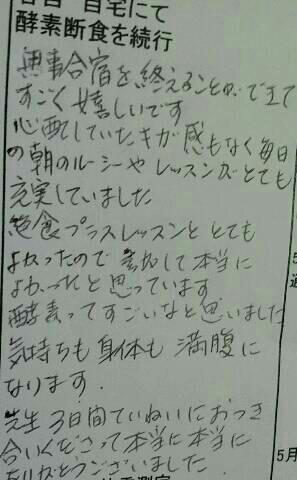 各自 自宅にて
酵素断食を続行
無事合宿を終えることができて
すごく嬉しいです
心配していたキガ感もなく毎日
の朝のルーシーやレッスンがとても
充実していました
絶食プラスレッスンととても
よかったので参加して本当に
よかったと思っています
酵素ってすごいなと思いました
気持ちも身体も満腹に
なります.
先生3日間ていねいにおつき
合いくださって本当に本当に
ありがとうございました
5月